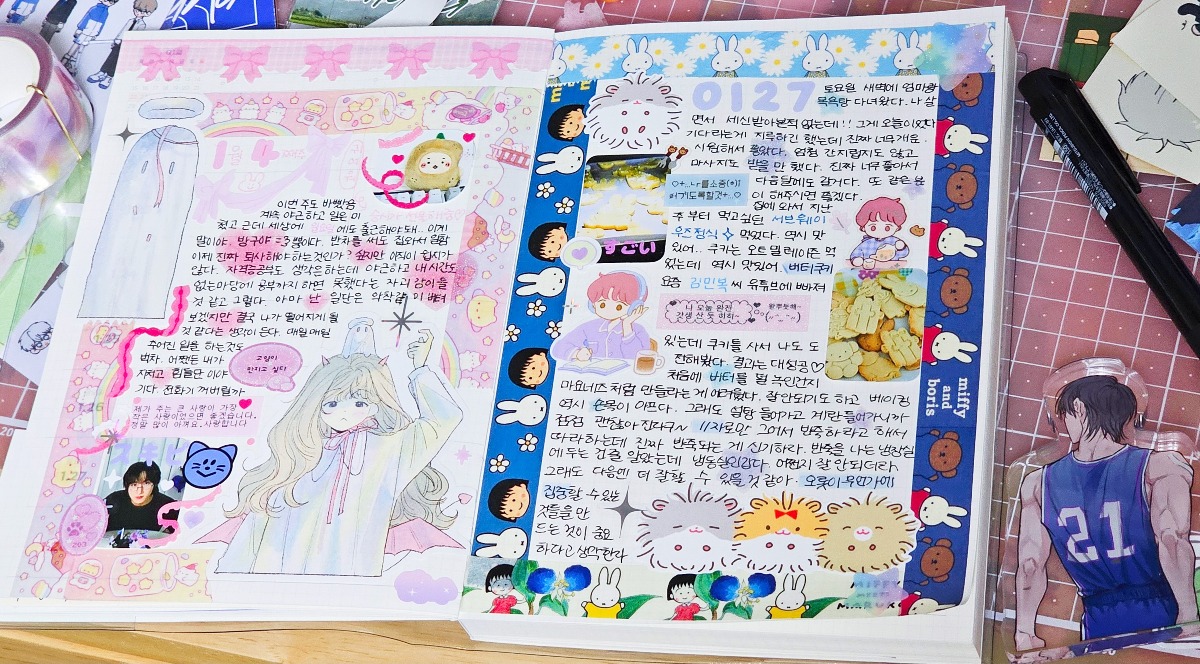 1월 4째주
이번 주도 바빴음
계속 야근하고 일은 이
쳤고 근데 세상에 에도 출근해야돼. 이게
말이야. 방구야 =3 뿡이다. 반차를 써도 집와서 일함
이제 진짜 퇴사해야 하는것인가? 싶지만 아직이 쉽지가
않다. 자격증공부도 생각은하는데 야근하고 내 시간도
없는마당에 공부까지 하면 못했다는 자괴감이 들
것 같고 그렇다. 아마 난 일단은 악착같이 버텨
보겠지만 결국 나가 떨어지게 될
것 같다는 생각이 든다. 매일매일
주어진 일을 하는것도
벅차. 어쨌든 내가
지치고 힘들단 이야
기다. 전화기 꺼버릴까
고양이
만지고 싶다
제가 주는 큰 사랑이 가장
작은 사랑이었으면 좋겠습니다.
정말 많이 아껴요.사랑합니다
1.26
1.27
스키비
203
0127
토요일 새벽에 엄마랑
목욕탕 다녀왔다. 나 살
면서 세신받아본적 없는데!! 그게 오늘이었다
기다리는게 지루하긴 했는데 진짜 너무개운.
시원해서 좋았다. 엄청 간지럽지도 않고
마사지도 받을 만 했다. 진짜 너무 좋아서
다음달에도 갈거다. 또 같은 분
이 해주시면 좋겠다.
♡+..나를소중(*)!
여기도록할것+..♡
집에 와서 지난
주부터 먹고싶던 서브웨이
우즈정식 ✧ 먹었다. 역시 맛
있어. 쿠키는 오트밀레이즌 먹
었는데 역시 맛있어. 버터쿠키
すごい
요즘 김민복 씨 유튜브에 빠져
나 오늘 완전
갓생 산 듯 히히
왕뿌듯해~
있는데 쿠키틀 사서 나도 도
전해봤다. 결과는 대성공♡
처음에 버터를 덜 녹인건지
마요네즈처럼 만들라는게 어려웠다. 잘안되기도 하고 베이킹
역시 손목이 아프다. 그래도 설탕 들어가고 계란들어가니까
점점 괜찮아진다구~ 11자로만 그어서 반죽하라고 해서
따라하는데 진짜 반죽되는 게 신기하다. 반죽을 나는 냉장실
에 두는 건줄 알았는데 냉동실인갑다. 어쩐지 잘 안되더라
그래도 다음엔 더 잘할 수 있을 것 같아. 오롯이 무언가에
집중할 수 있는
것들을 만
드는 것이 중요
하다고 생각한다
miffy
and
boris
MIFFY
MEETS
MARUKO
21